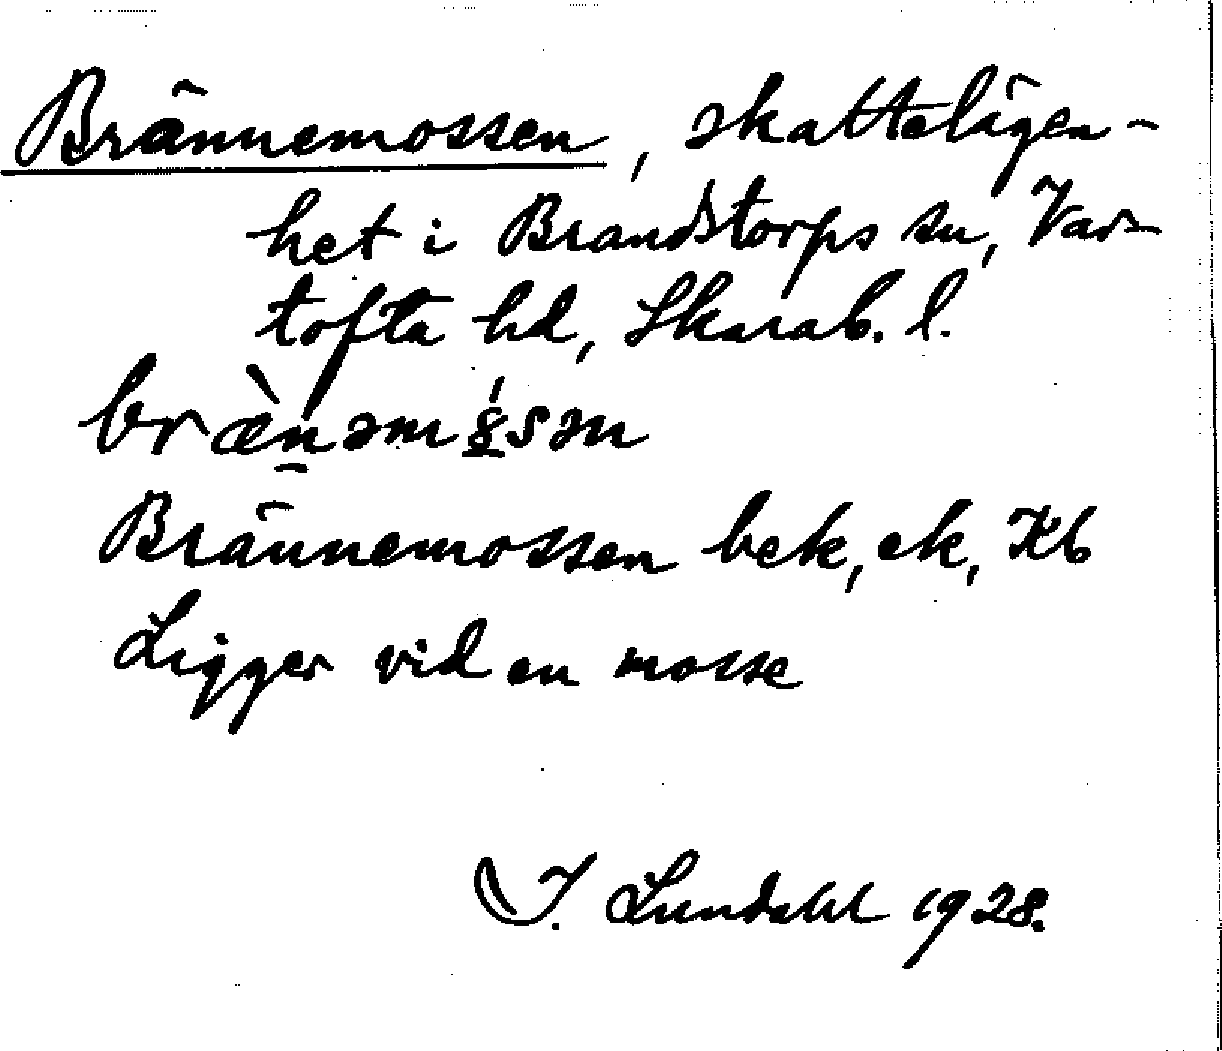 Brännemossen, skattelägen-
het i Brandstorps sn, Var-
tofta hd, Skarab. l.
Brännemossen bek, ek, Kb
Ligger vid en mosse
I. Lundahl 1928.